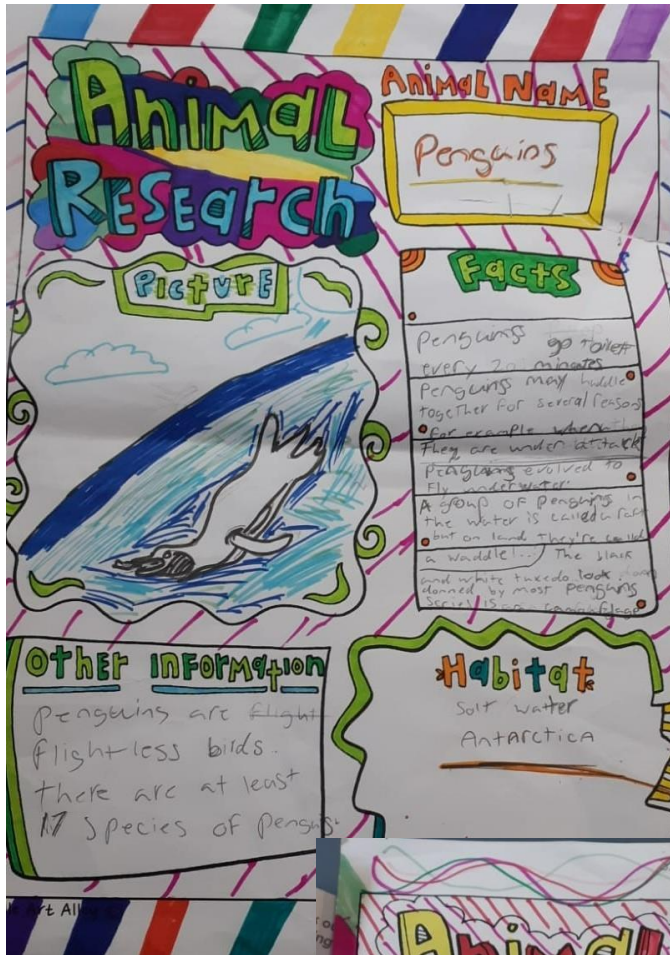 Animal
Research
Animal Name
Penguins
Picture
Facts
Penguins go
every 20 minutes
Penguins may huddle
together for several reasons
for example when
They are under attack
Penguins evolved to
fly underwater
A group of Penguins in
the water is called a raft
but on land they're called
a waddle!... The black
and white tuxedo look
donned by most penguins
Series is
Other Information
Penguins are flight
flightless birds.
there are at least
17 Species of
Habitat
Solt watter
Antarctica
Art
Animal